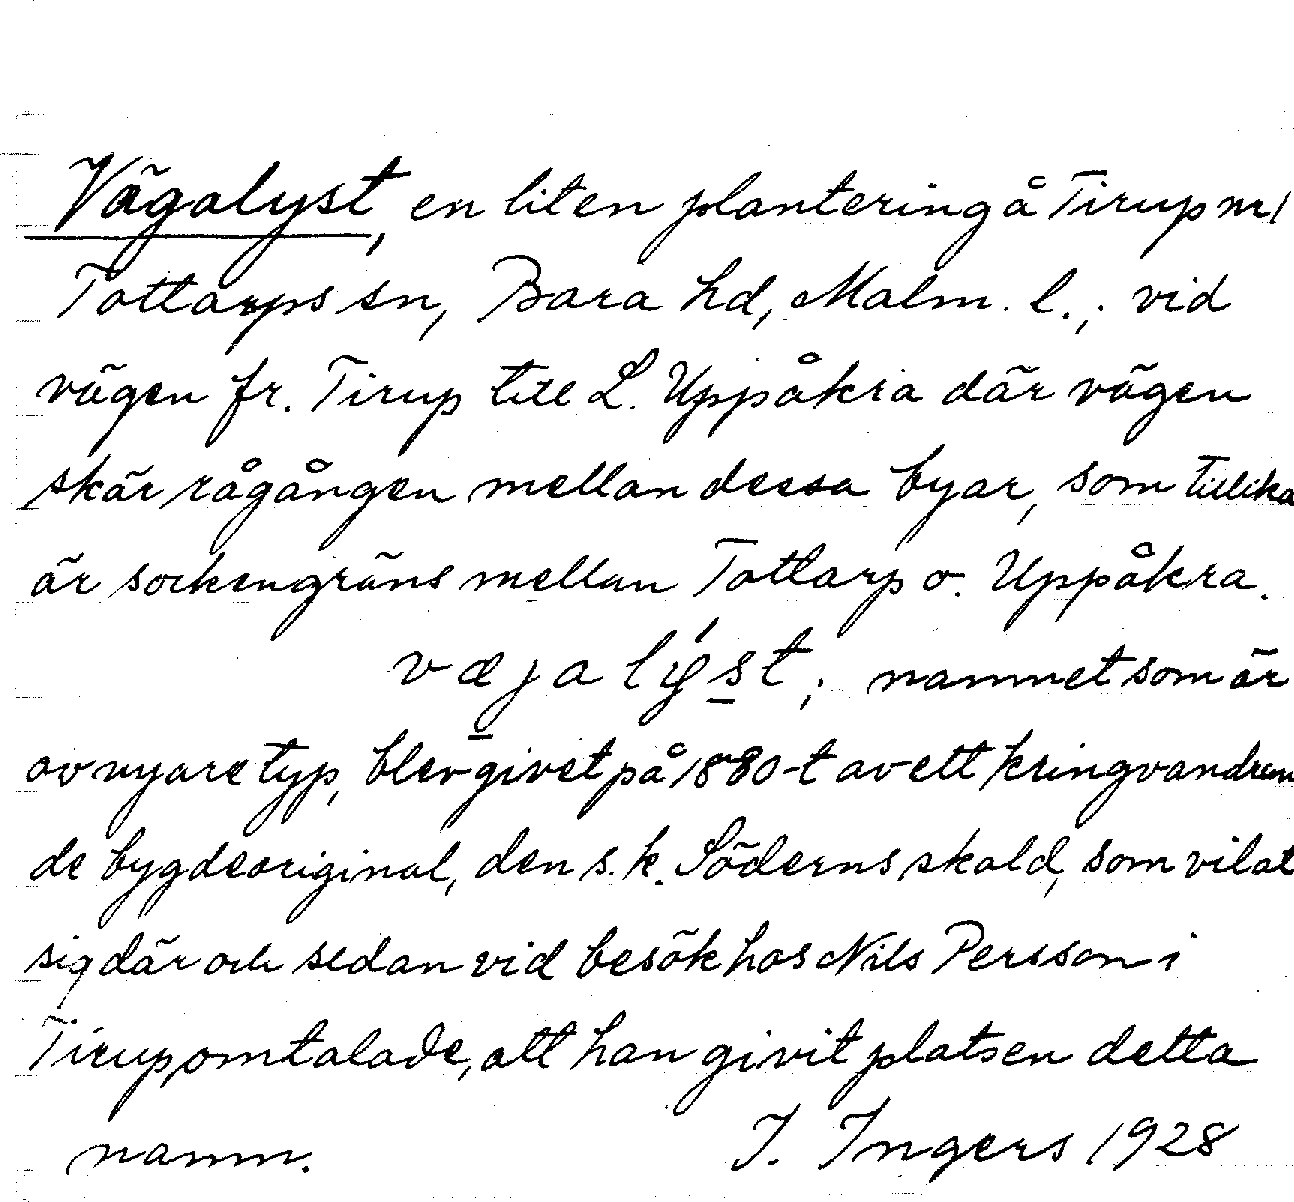 Vägalyst, en liten plantering å Tirup nr 1
Tottarps sn, Bara hd, Malm. l.; vid
vägen fr. Tirup till L. Uppåkra där vägen
skär rågången mellan dessa byar, som tillika
är sockengräns mellan Tottarp o. Uppåkra.
væjalýst; namnet som är
av nyare typ, blev givet på 1880-t av ett kringvandran
de bygdeoriginal, den s.k. Söderns skald, som vilat
sig där och sedan vid besök hos Nils Persson i
Tirup, omtalade, att han givit platsen detta
namn. I. Ingers 1928